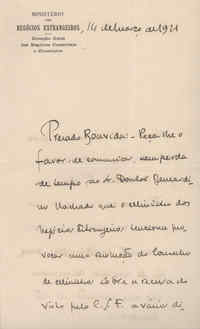 MINISTÉRIO
DOS
NEGÓCIOS ESTRANGEIROS
Direcção Geral
dos Negócios Comerciais
e Consulares
14 de Março de 1921
Presado Bouvida: - Peça-lhe o
favor de comunicar, sem perda
de tempo ao Sr. Doutor Bernardi-
no Machado que o ministro dos
Negócios Estrangeiros tenciona pro-
vocar uma resolução do Conselho
de ministros sobre a recusa do
visto pelo C. S. F. a vários di-